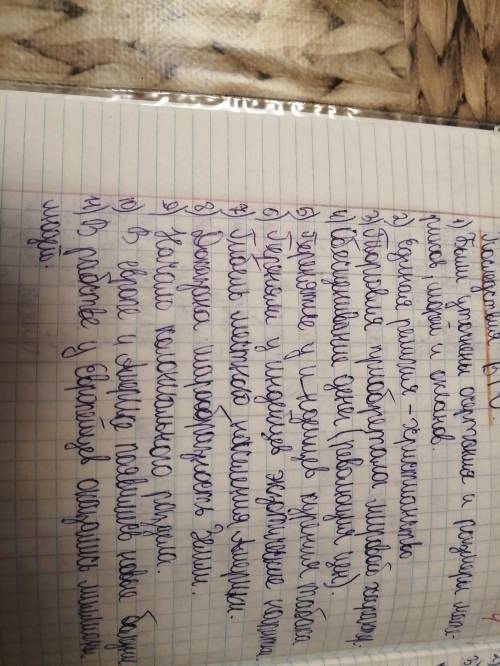 1) Были уточнены очертания и размеры мате-
риков, морей и океанов.
2) Единая религия - христианство
3) Торговля приобретала мировой характер.
4) Обесценивание денег (революция цен).
5) Переняты у индейцев курение табака
6) Переняли у индейцев жертвоприношение
7) Гибель местного населения Америки.
8) Доказана шарообразность Земли.
9) Начало колониального раздела.
10) В европе и Америке появились новые
11) В рабстве у Европейцев оказались миллионы
людей.